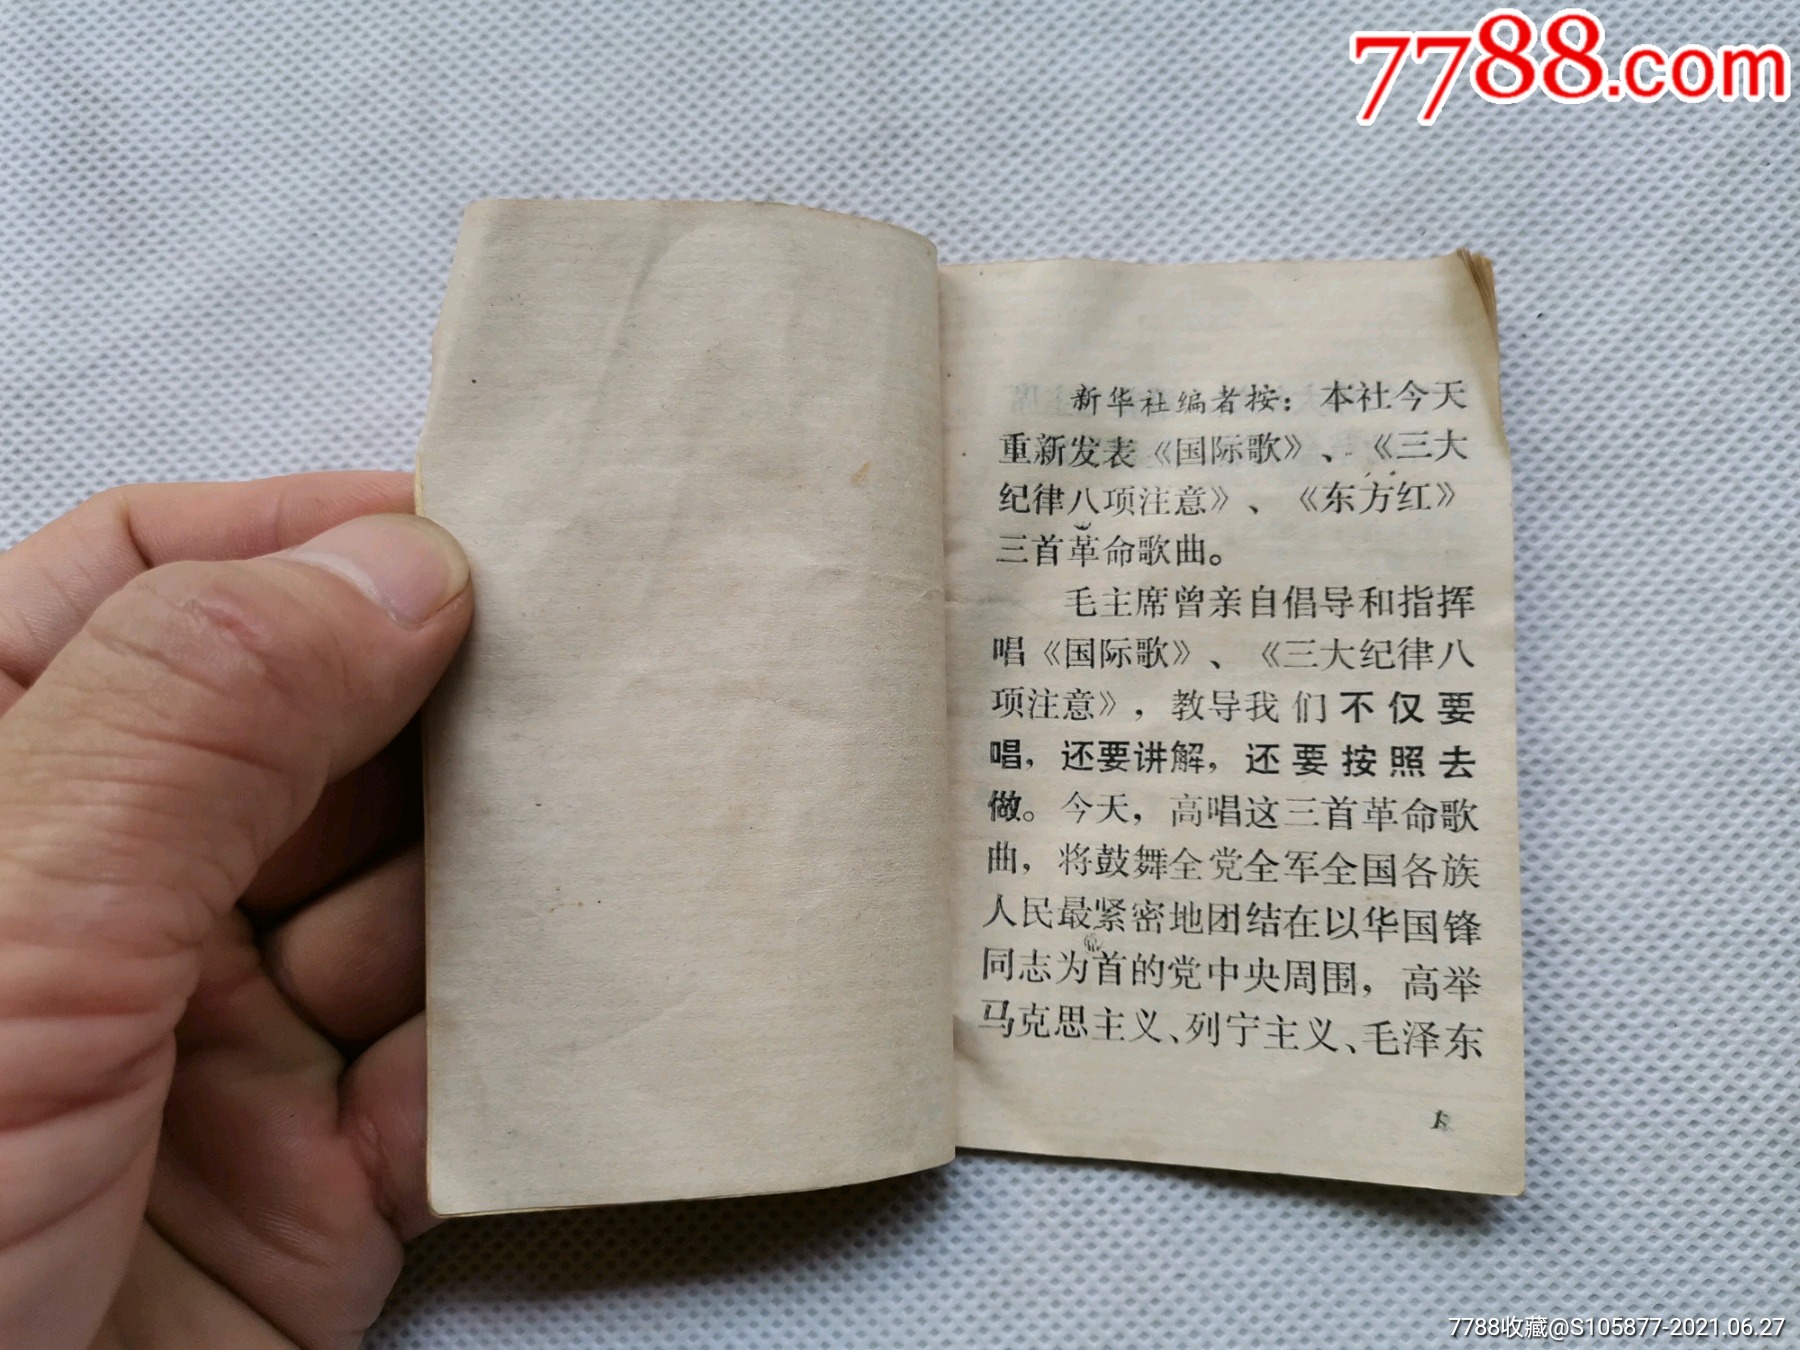 7788.com
新华社编者按：本社今天
重新发表《国际歌》、《三大
纪律八项注意》、《东方红》
三首革命歌曲。
毛主席曾亲自倡导和指挥
唱《国际歌》、《三大纪律八
项注意》，教导我们不仅要
唱，还要讲解，还要按照去
做。今天，高唱这三首革命歌
曲，将鼓舞全党全军全国各族
人民最紧密地团结在以华国锋
同志为首的党中央周围，高举
马克思主义、列宁主义、毛泽东
1
7788收藏@S105877-2021.06.27